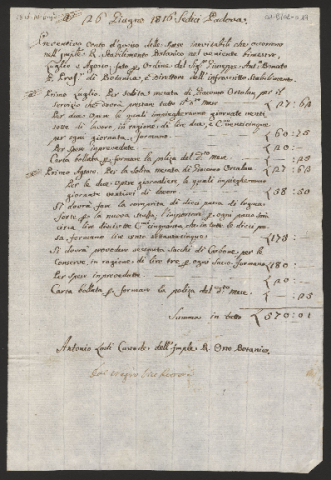 26 Giugno 1816 Padova.
Preventivo Conto di spese delle Spese inevitabili che occorrono
nell'Imple. R. Stabilimento Botanico nel venturo bimestre
Luglio e Agosto, fatto per Ordine del Sigr. Giuseppe Anto. Bonato
P. Profre. di Botanica, e Direttore dell'infrascritto Stabilimento.
Primo Luglio. Per Solita mesata di Giacomo Orsolan, per il
servizio che dovrà prestare tutto il do. Mese £ 27:63
Per due Opere le quali impiegheranno giornate venti
sette di lavoro in ragione di lire due, e Cmi. venticinque
per ogni giornata, formano £ 60:75
Per spese imprevedute £ 20:
Carta bollata per formare la poliza del mese £ :
Primo Agosto. Per la Solita mesata di Giacomo Orsolan £ 27:63
Per le due Opere giornaliere, le quali impiegheranno
giornate ventisei di lavoro £ 58:50
Si dovrà fare la comprita di dieci passa di legna
forte, per la nuova stufa, l'importo per ogni passo sarà
circa lire diecisette Cmi. cinquanta, che in tutto le dieci passa
formano lire cento settantacinque £ 175:
Si dovrà provedere sessanta sacchi di Carbone per le
Conserve, in ragione di lire tre per ogni Sacco, formano £ 180:
Per spese imprevedute £ 20:
Carta bollata per formare la poliza del mese £ :
Summa in tutto £ 570:01
Antonio Lodi Custode dell'Imple. R. Orto Botanico.